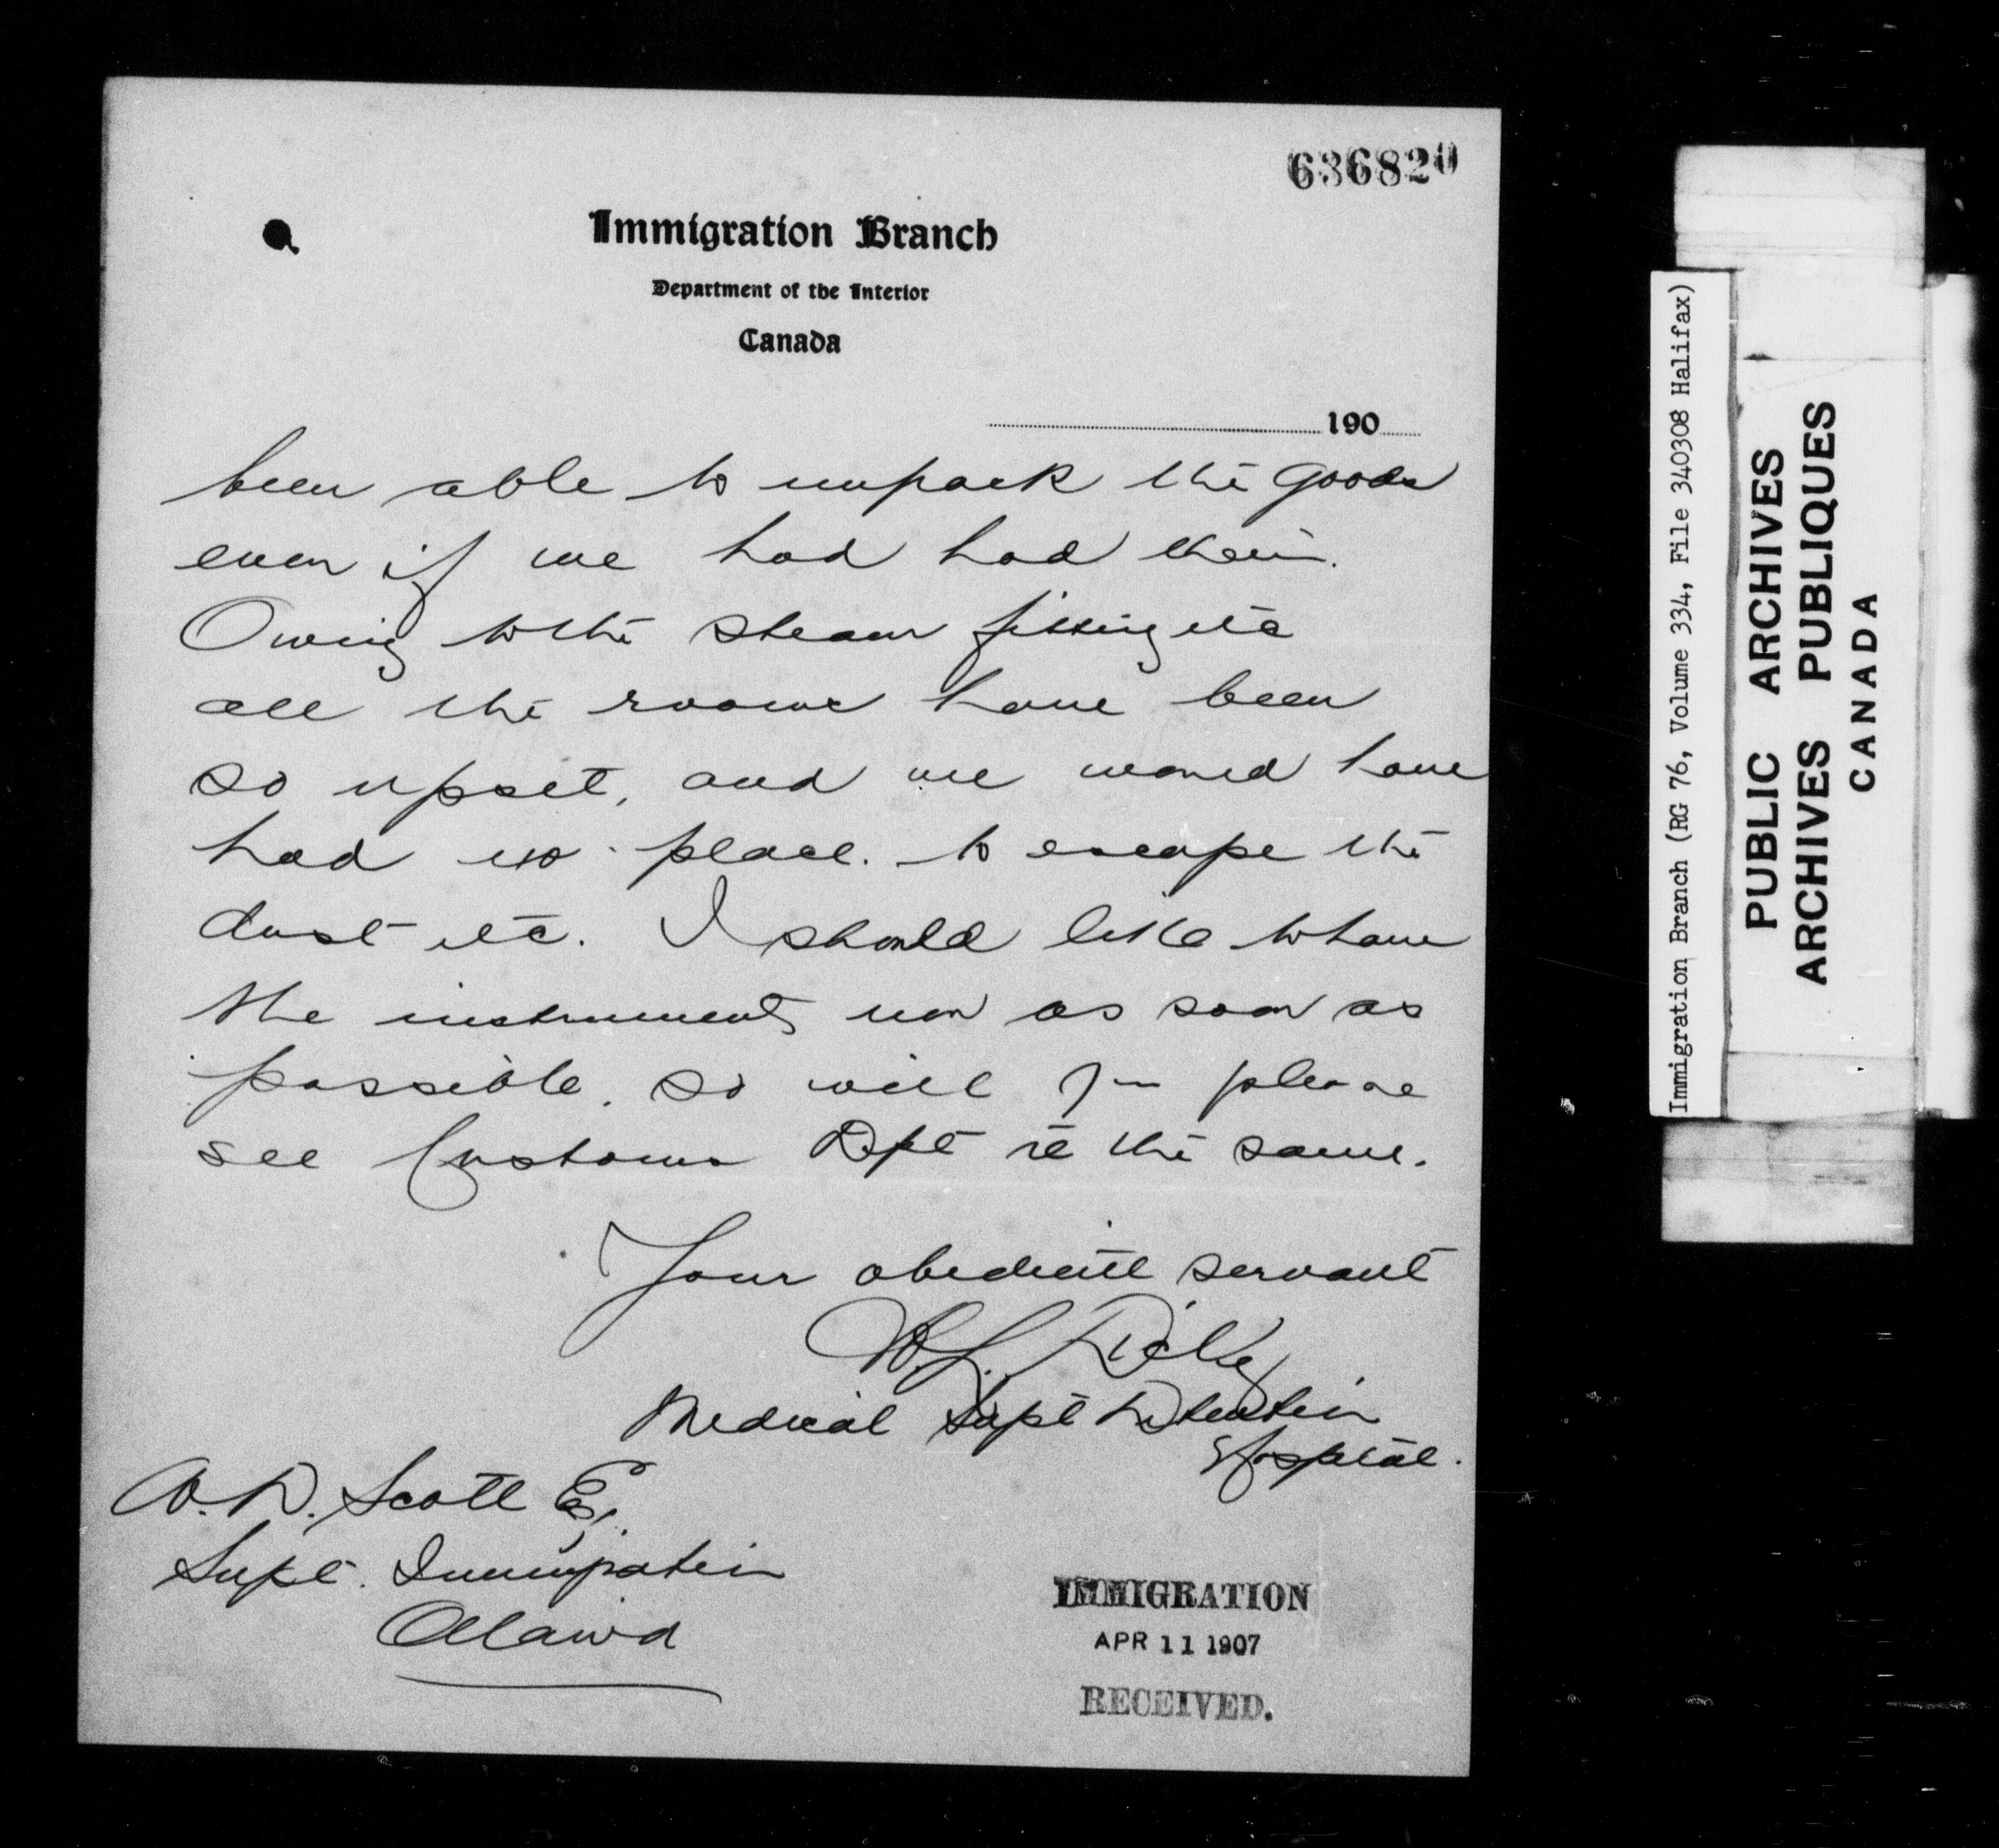 636820
Immigration Branch
Department of the Interior
Canada
190
been able to unpack the goods
even if we had had them.
Owing to the steam fitting etc
all the rooms have been
so upset, and we would have
had no place. to escape the
dust etc. I should like to have
the instruments now as soon as
possible. so will you please
see Customs Dept re the same.
Your obedient servant
W.L.
Medical Supt Detention
Hospital.
W.D. Scott Esq.
Supt. Immigration
Ottawa
IMMIGRATION
APR 11 1907
RECEIVED.
Immigration Branch (RG 76, Volume 334, File 340308 Halifax)
PUBLIC ARCHIVES
ARCHIVES PUBLIQUES
CANADA